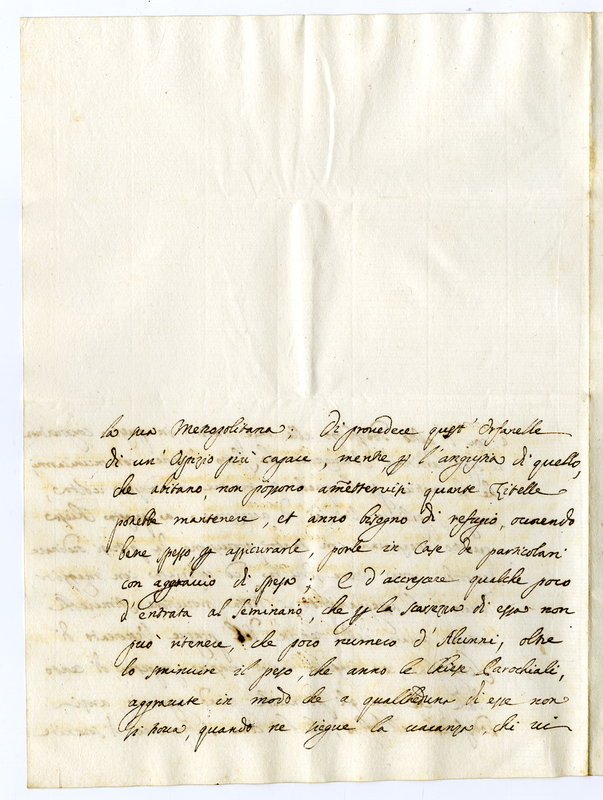 la sua Metropolitana; Di provedere quest' Orfanelle
di un' Ospizio più capace, mentre p l'angustia di quello,
che abitano, non possono amettervisi quante Zitelle
potrebbe mantenere, et anno bisogno di refugio, ocorendo
bene spesso p assicurarle, porle in Case de particolari
con aggravio di spesa; E d'accrescere qualche poco
d'entrata al Seminario, che p la scarsezza di essa non
può ritenere, che poco numero d'Alunni, oltre
lo sminuire il peso, che anno le Chiese Parochiali,
aggravate in modo che a qualcheduna di esse non
si trova, quando ne siegue la vacanza, chi vi